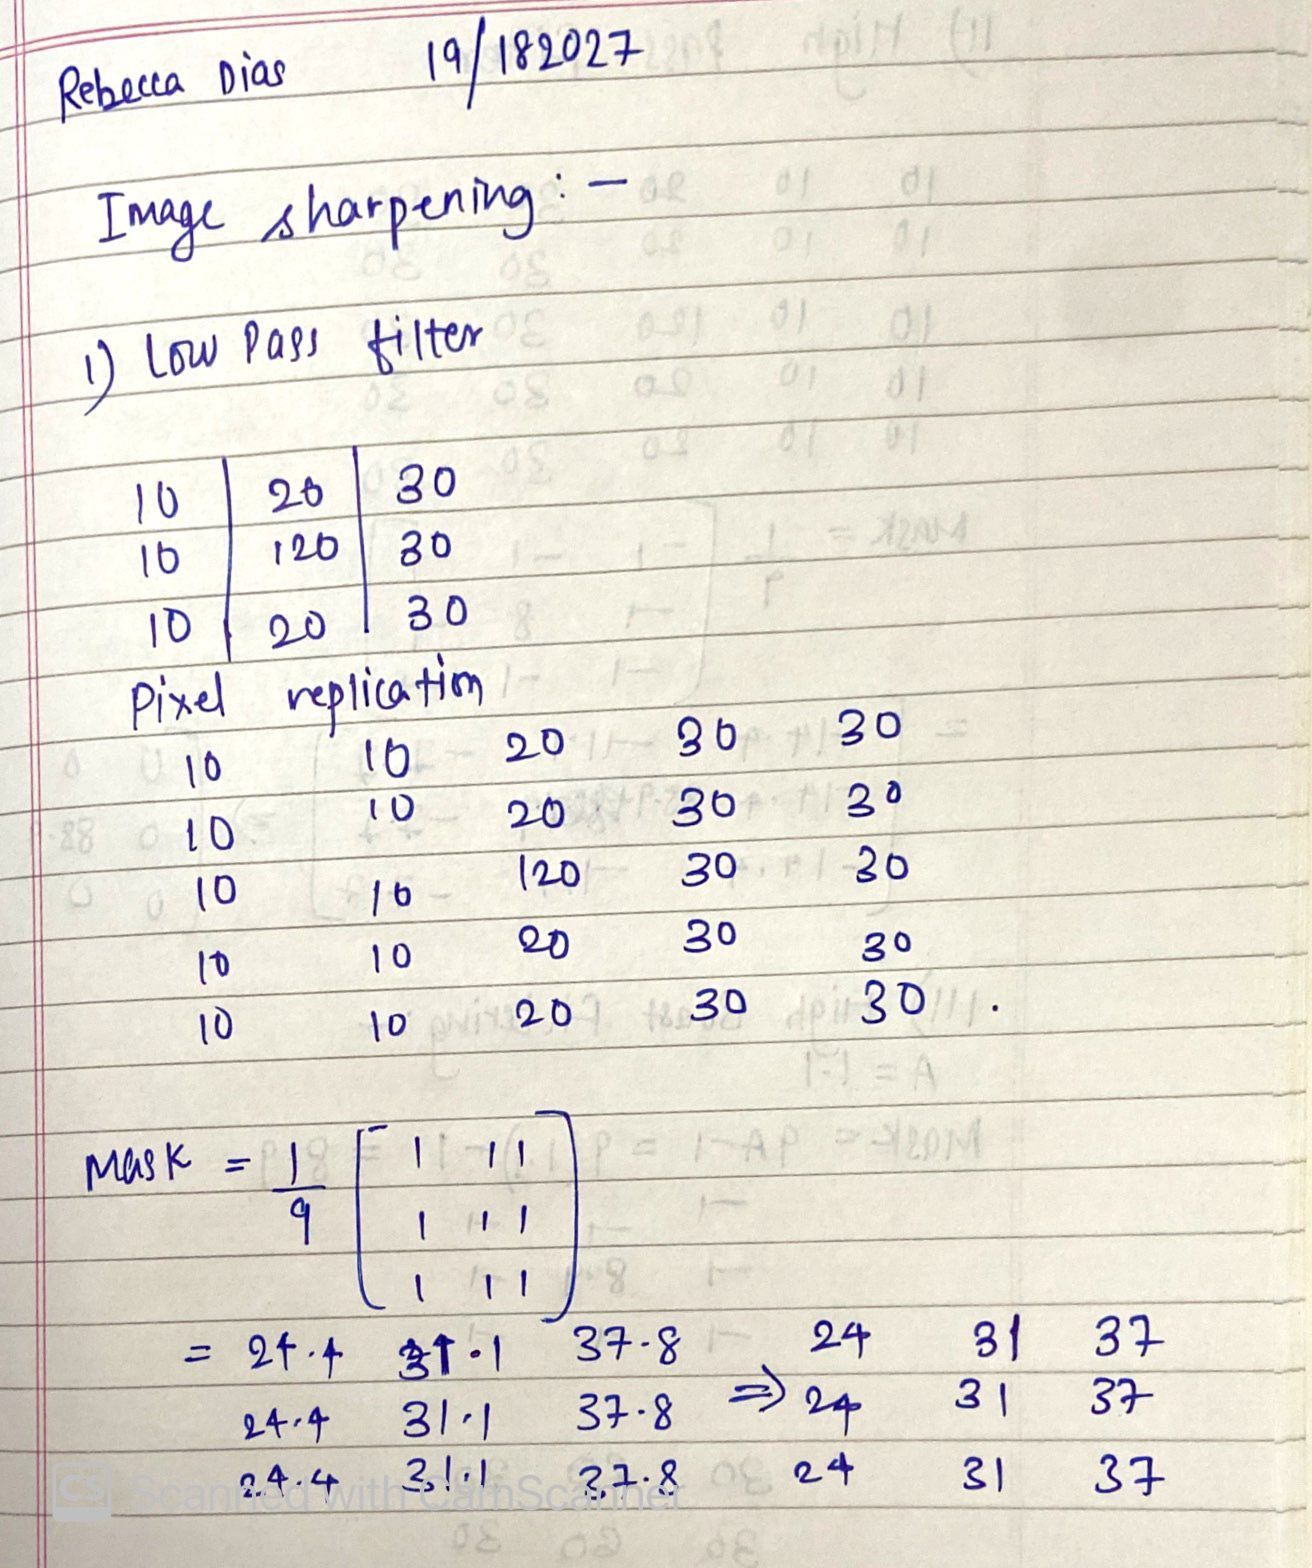 Rebecca Dias 19/182027
Image sharpening : -
1) Low Pass filter
10 20 30
10 120 30
10 20 30
Pixel replication
10 10 20 30 30
10 10 20 30 30
10 10 120 30 30
10 10 20 30 30
10 10 20 30 30 .
Mask = 1/9 [ 1 1 1
1 1 1
1 1 1 ]
= 24.4 31.1 37.8 24 31 37
24.4 31.1 37.8 => 24 31 37
24.4 31.1 37.8 24 31 37
CS Scanned with CamScanner